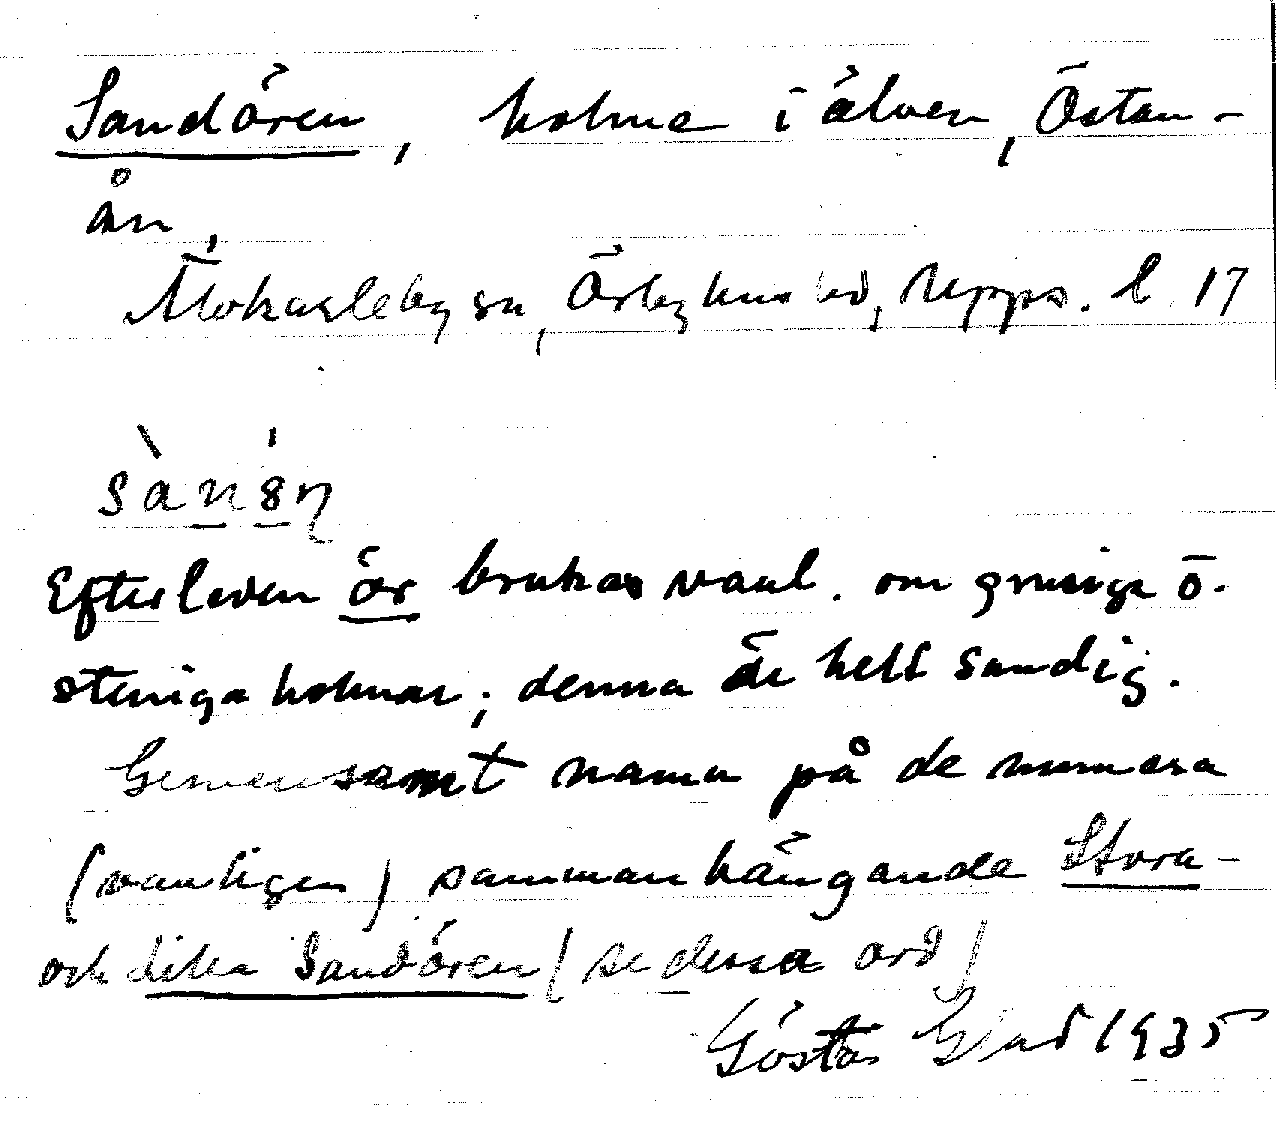 Sandören, holme i älven, Östan-
ån,
Älvkarleby sn, Örbyhus hd, Upps. l 17
Efterleden ör brukas vanl. om grusiga o.
steniga holmar; denna är helt sandig.
Gemensamt namn på de numera
(vanligen) sammanhängande Stora-
och Lilla Sandören (se dessa ord)
Gösta 1935